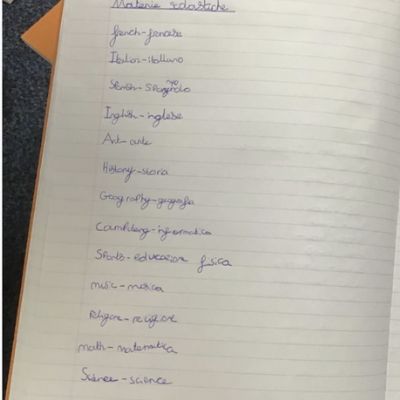 Materie scolastiche
french-francese
Italian-italiano
Spanish-spagnolo
Inglish-inglese
Art-arte
History-storia
Geography-geografia
Computing-informatica
Sports-educazione fisica
music-musica
religion-religione
math-matematica
Science-science